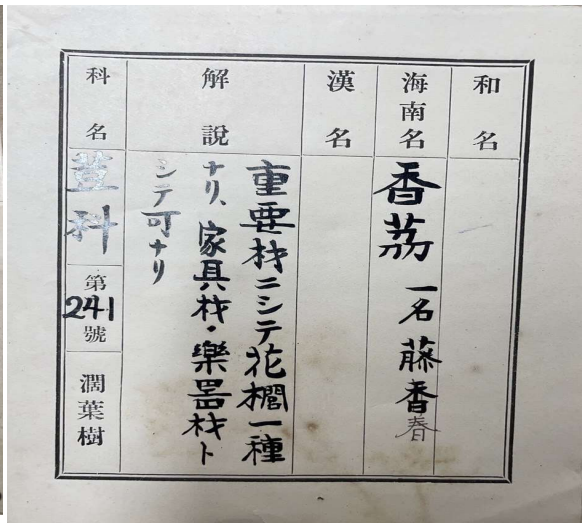 和名
海南名
香茘 一名藤香春
漢名
解說
重要材ニシテ花櫚一種
ナリ、家具材・樂器材ト
シテ可ナリ
科名
荳科
第
241
號
濶葉樹